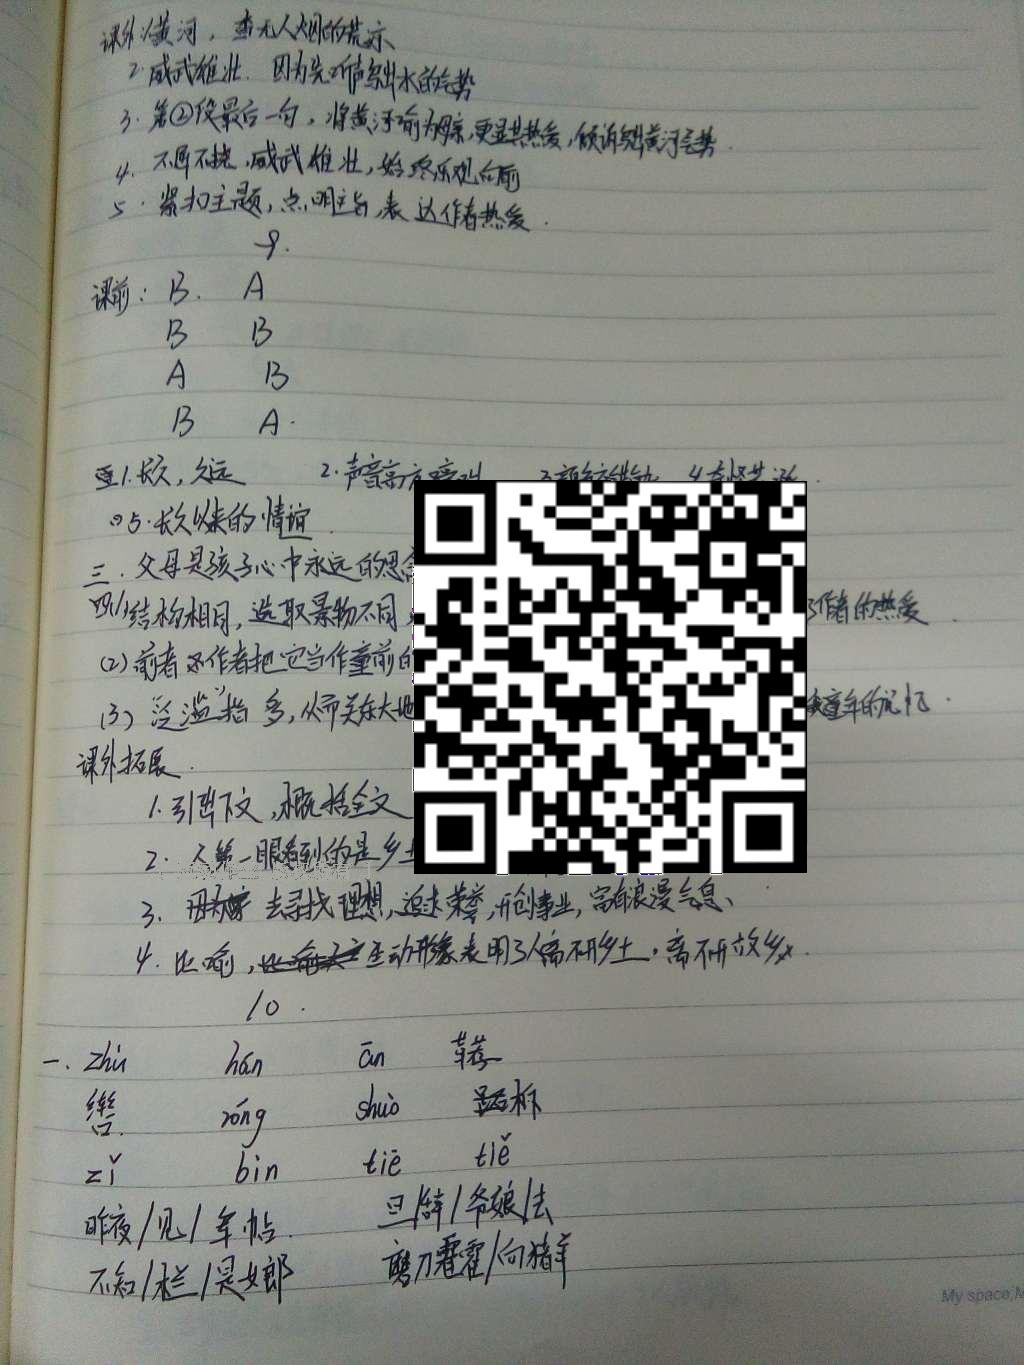 课外1.黄河,杳无人烟的荒凉
2.威武雄壮.因为先听声写出水的气势
3.第②段最后一句,将黄河喻为母亲,更显其热爱,倾诉写出黄河气势.
4.不屈不挠,威武雄壮,始终乐观向前
5.紧扣主题,点明主旨,表达作者热爱.
9.
课前: B. A
B B
A B
B A.
1.长久,久远 2.声音高亢
5.长久以来的情谊.
三.父母是孩子心中永远的思念
四(1)结构相同,选取景物不同 了作者的热爱.
(2)前者 作者把它当作童前的
(3)"泛滥"指多,从而 大地 童年的记忆.
课外拓展.
1.引出下文,概括全文
2.人第一眼看到的是乡土
3. 去寻找理想,追求荣誉,开创事业,富有浪漫气息、
4.比喻, 生动形象表明了人离不开乡土.离不开故乡.
10.
一.zhù hán ān 鞯
辔 róng shuò 柝
zǐ bìn tiē tiě
昨夜/见/军帖. 旦/辞/爷娘/去
不知/木兰/是女郎 磨刀霍霍/向猪羊
My space,M